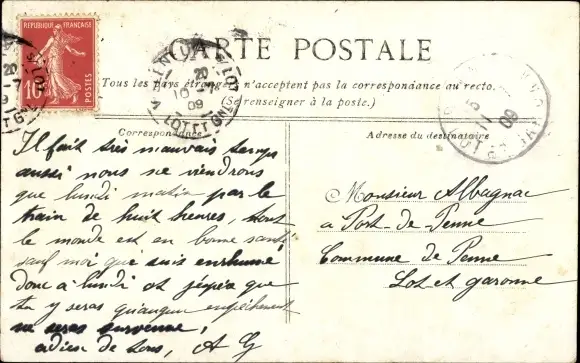 REPUBLIQUE FRANÇAISE
10
POSTES
CARTE POSTALE
Tous les pays étrangers n'acceptent pas la correspondance au recto.
(Se renseigner à la poste.)
20
10 -7
09
LOT ET GNE
09
Correspondance
Adresse du destinataire
Il fait très mauvais temps
aussi nous ne viendrons
que lundi matin par le
train de huit heures, tout
le monde est en bonne santé
sauf moi que suis enrhumé
Donc a lundi et j'éspère que
tu y seras qu'aucun empêchement
ne seras survenue,
adieu de tous, A G
Monsieur Albagnac
a Port-de Penne
Commune de Penne
Lot et garonne